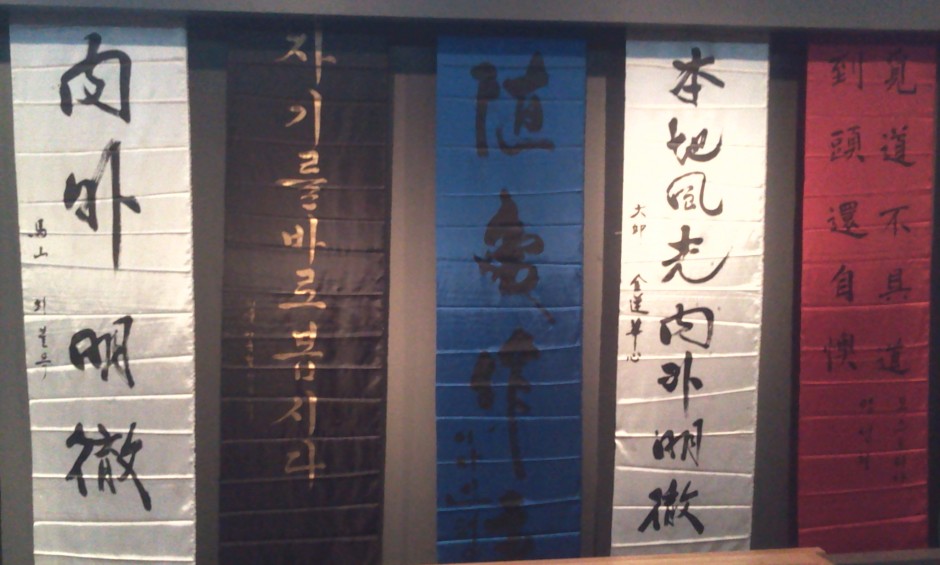 内外明徹
馬山
자기를바로봅시다
随處作主
本地風光内外明徹
大邱 金蓮華心
覓道不見道
到頭還自懊